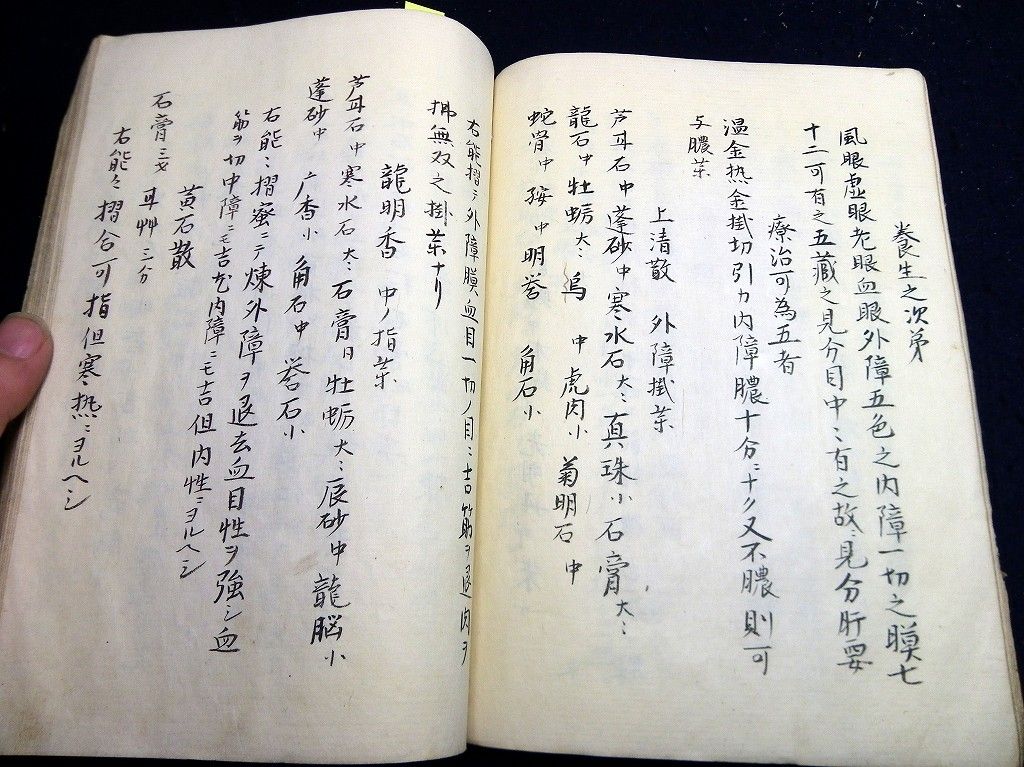 養生之次第
風眼虚眼老眼血眼外障五色之内障一切之膜七
十二可有之五蔵之見分目中ニ有之故ニ見分肝要
療治可為五者
温金热金掛切引カ内障膿十分ニナリ又不膿則可
与膿薬
上清散 外障掛薬
芦耳石中 蓬砂中 寒水石大ニ 真珠小 石膏大ニ
龍石中 牡蛎大ニ 烏 中 虎肉小 菊明石 中
蛇骨中 中 明礬 角石小
右能摺テ外障膜血目一切ノ目ニ吉筋ヲ退肉ヲ
押無双之掛薬ナリ
龍明香 中ノ指薬
芦耳石中 寒水石大ニ 石膏日 牡蛎大ニ 辰砂中 龍脳小
蓬砂中 广香小 角石中 礬石小
右能ニ摺蜜ニテ煉外障ヲ退去血目性ヲ強シ血
筋ヲ切中障ニモ吉尤内障ニモ吉但内性ニヨルヘシ
黄石散
石膏三戈 耳艸三分
右能々摺合可指但寒热ニヨルヘシ